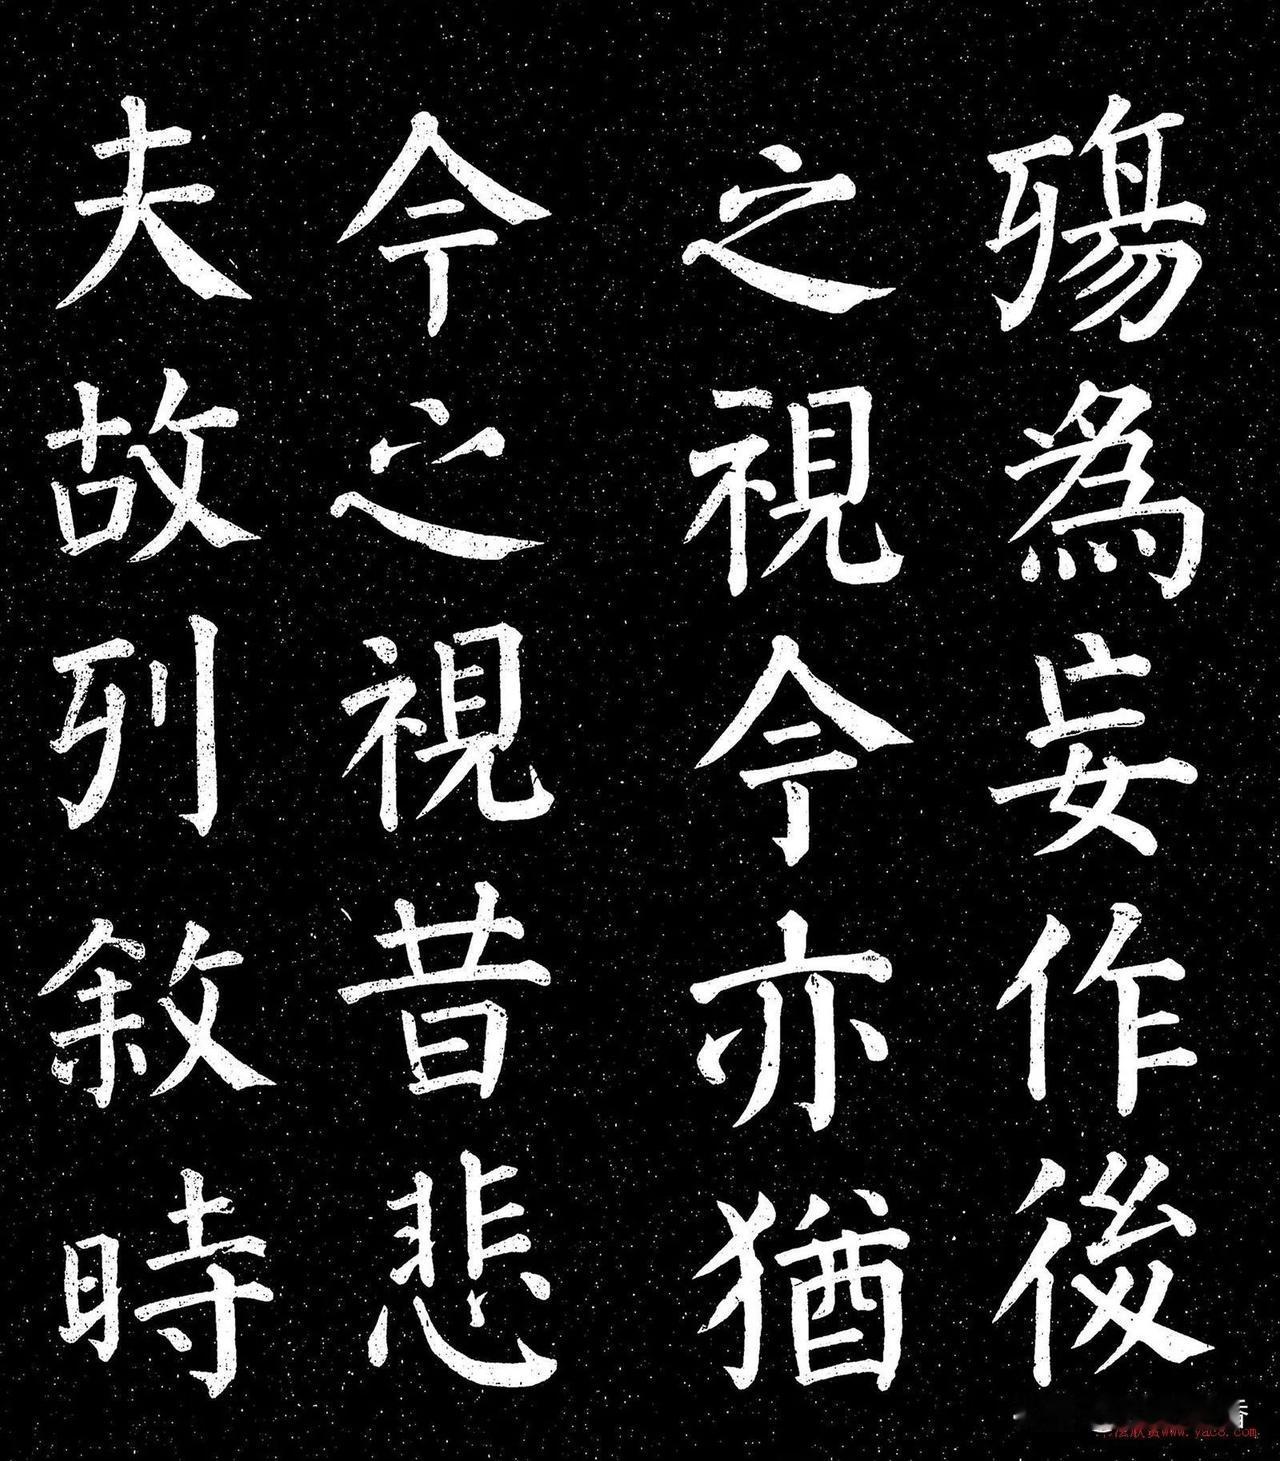 殤為妄作後
之視今亦猶
今之視昔悲
夫故列敘時
www.yac8.com